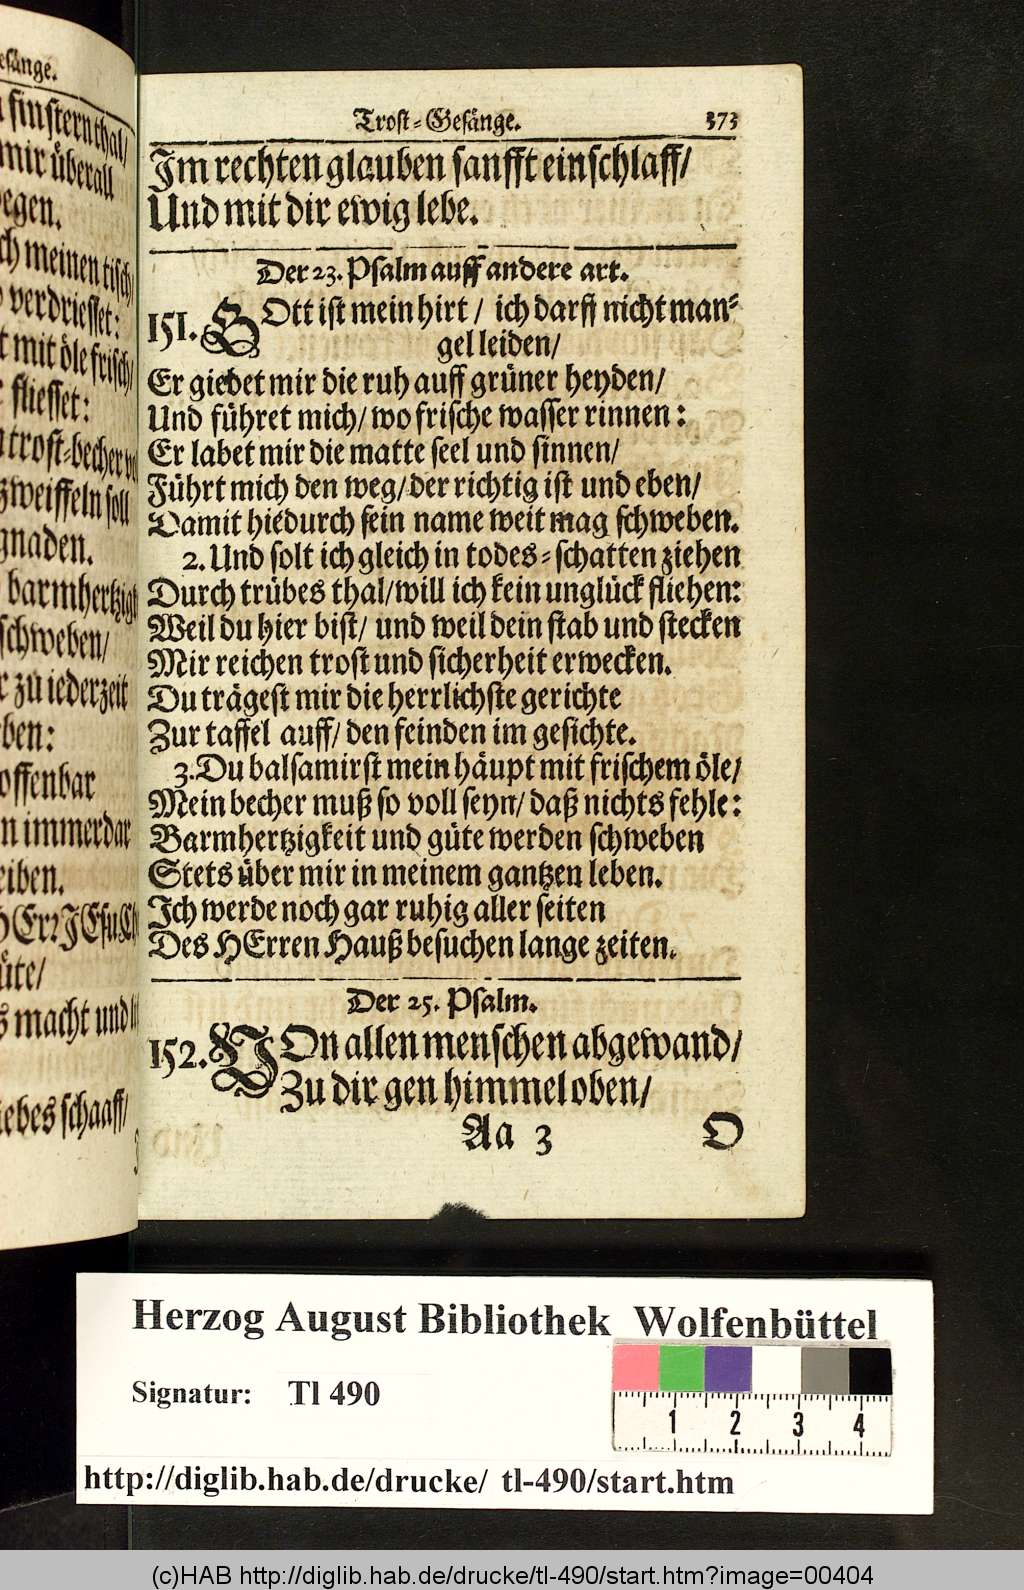 esänge.
finstern thal/
mir überall
egen.
ch meinen tisch
verdriesset:
t mit öle frisch/
fliesset:
trost-becher
zweiffeln soll
gnaden.
barmhertzigk
schweben/
r zu iederzeit
ben:
offenbar
n immerdar
eiben.
HErr JEsu
üte/
s macht und
iebes schaaff/
Trost-Gesänge. 373
Im rechten glauben sanfft einschlaff/
Und mit dir ewig lebe.
Der 23. Psalm auff andere art.
151. GOtt ist mein hirt / ich darff nicht man-
gel leiden/
Er giebet mir die ruh auff grüner heyden/
Und führet mich/ wo frische wasser rinnen:
Er labet mir die matte seel und sinnen/
Führt mich den weg/ der richtig ist und eben/
Damit hiedurch sein name weit mag schweben.
2. Und solt ich gleich in todes-schatten ziehen
Durch trübes thal/ will ich kein unglück fliehen:
Weil du hier bist/ und weil dein stab und stecken
Mir reichen trost und sicherheit erwecken.
Du trägest mir die herrlichste gerichte
Zur taffel auff/ den feinden im gesichte.
3. Du balsamirst mein häupt mit frischem öle/
Mein becher muß so voll seyn/ daß nichts fehle:
Barmhertzigkeit und güte werden schweben
Stets über mir in meinem gantzen leben.
Ich werde noch gar ruhig aller seiten
Des HErren Hauß besuchen lange zeiten.
Der 25. Psalm.
152. VOn allen menschen abgewand/
Zu dir gen himmel oben/
Aa 3 O
Herzog August Bibliothek Wolfenbüttel
Signatur: Tl 490
1 2 3 4
http://diglib.hab.de/drucke/ tl-490/start.htm
(c)HAB http://diglib.hab.de/drucke/tl-490/start.htm?image=00404